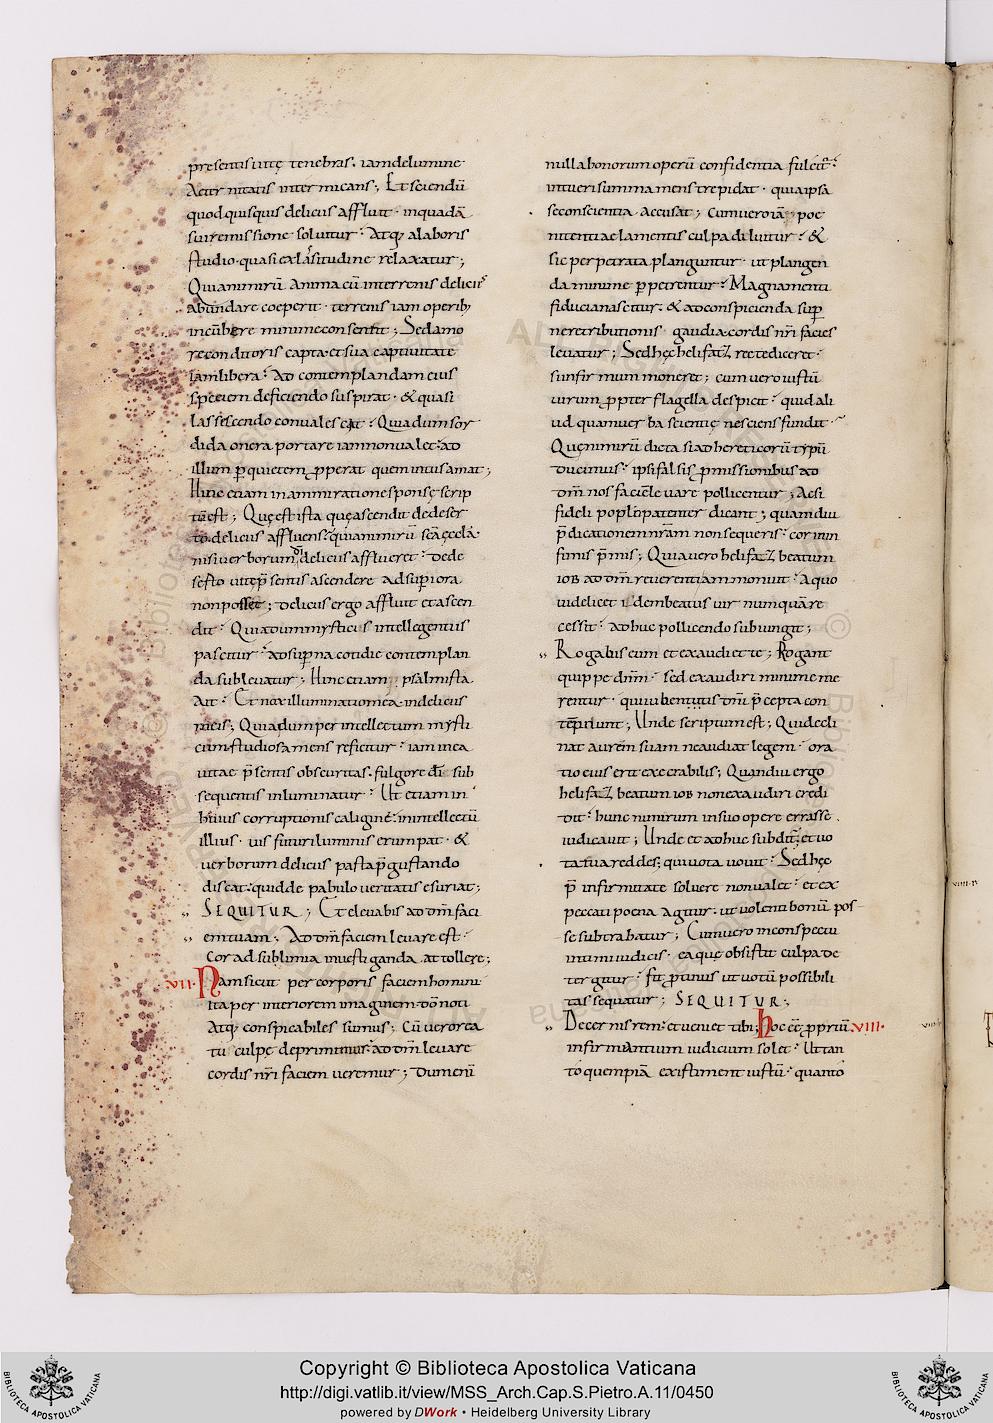 presentis uitę tenebras. iam de lumine
Aeternitatis inter micans; Et sciendū
quod quisquis deliciis affluit · in quadā
sui remissione soluitur · Atq; a laboris
studio · quasi ex lassitudine relaxatur;
Quia nimirū Anima cū internis deliciis
abundare coeperit · terrenis iam operib;
incūbere minime consentit; Sed amo
re conditoris capta · et sua captiuitate
iam libera · Ad contemplandam eius
speciem deficiendo suspirat · & quasi
lassescendo conualescit · Quia dum sor
dida onera portare iam non ualet · ad
illum p quietem pperat quem intus amat;
Hinc etiam in ammiratione sponsę scrip
tū est; Quę est ista quę ascendit de deser
to deliciis affluens · quia nimirū scā ęccła
nisi uerborum di deliciis afflueret · de de
serto uitę p̄sentis ascendere ad supiora
non posset; deliciis ergo affluit et ascen
dit · Quia dum mysticis intellegentiis
pascitur · ad supna cotidie contemplan
da subleuatur; Hinc etiam psalmista
Ait · Et nox illuminatio mea in deliciis
meis; Quia dum per intellectum mysti
cum studiosa mens reficitur · iam in ea
uitae p̄sentis obscuritas · fulgore diei sub
sequentis inluminatur · Ut etiam in
huius corruptionis caligine · in intellectū
illius · uis futuri luminis erumpat · &
uerborum deliciis pasta p̄gustando
discat · quid de pabulo ueritatis esuriat;
SEQUITUR; Et eleuabis ad dm̄ faci
em tuam; Ad dm̄ faciem leuare est ·
Cor ad sublimia inuestiganda attollere;
VII. Nam sicut per corporis faciem hominī
ita per interiorem imaginem dō noti
Atq; conspicabiles sumus; Cū uero rea
tu culpę deprimimur · ad dm̄ leuare
cordis nr̄i faciem ueremur; Dum enī
nulla bonorum operū confidentia fulcit ·
intueri summa mens trepidat · quia ipsa
se conscientia accusat; Cum uero iā poe
nitentiae lamentis culpa diluitur · &
sic perpetrata planguntur · ut plangen
da minime ppetrentur · Magna menti
fiducia nascitur · & ad conspicienda sup
ne retributionis gaudia · cordis nr̄i facies
leuatur; Sed hęc helifaz recte diceret ·
si infirmum moneret; cum uero iustū
uirum ppter flagella despicit · quid ali
ud quam uerba scientię nesciens fundit ·
Quę nimirū dicta si ad hereticorū typū
ducimus · ipsi falsis pmissionibus ad
dm̄ nos faciē leuare pollicentur; Ac si
fideli poplo patenter dicant; quamdiu
p̄dicationem nr̄am non sequeris · cor in in
fimis p̄mis; Quia uero helifaz beatum
iob ad dm̄ reuerentiam monuit · A quo
uidelicet idem beatus uir numquā re
cessit · adhuc pollicendo subiungit;
Rogabis eum et exaudiet te; Rogant
quippe dnm̄ · sed exaudiri minime me
rentur · qui iubentis dm̄i p̄cepta con
tēpdunt; Unde scriptum est; Qui decli
nat aurem suam ne audiat legem · ora
tio eius erit execrabilis; Quandiu ergo
helifaz beatum iob non exaudiri credi
dit · hunc nimirum in suo opere errasse
iudicauit; Unde et adhuc subdit; et uo
ta tua reddes; qui uota uouit · Sed hęc
p̄ infirmitate soluere non ualet · et ex
peccati poena agitur · ut uolenti bonū pos
se subtrahatur; Cum uero in conspectu
intimi iudicis · ea quę obsistit culpa de
tergitur · fit ptinus ut uotū possibili
tas sequatur; SEQUITUR;
Decernis rem · et ueniet tibi; Hoc eē ppriū VIII.
infirmantium iudicium solet · Ut tan
to quempiā existiment iustū · quanto
Copyright © Biblioteca Apostolica Vaticana
http://digi.vatlib.it/view/MSS_Arch.Cap.S.Pietro.A.11/0450
powered by DWork • Heidelberg University Library
BIBLIOTECA APOSTOLICA VATICANA
BIBLIOTECA APOSTOLICA VATICANA